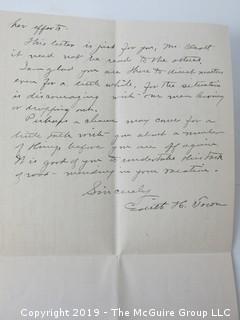 her efforts.
This letter is just for you, Mr.
it need not be read to the others.
I am glad you are there to direct matters
even for a little while, for the situation
is discouraging with our men leaving
or dropping out.
Perhaps a chance may come for a
little talk with you about a number
of things before you are off again.
It is good of you to undertake this task
of road-mending in your vacation.
Sincerely
Edith H.
Copyright 2019 - The McGuire Group LLC